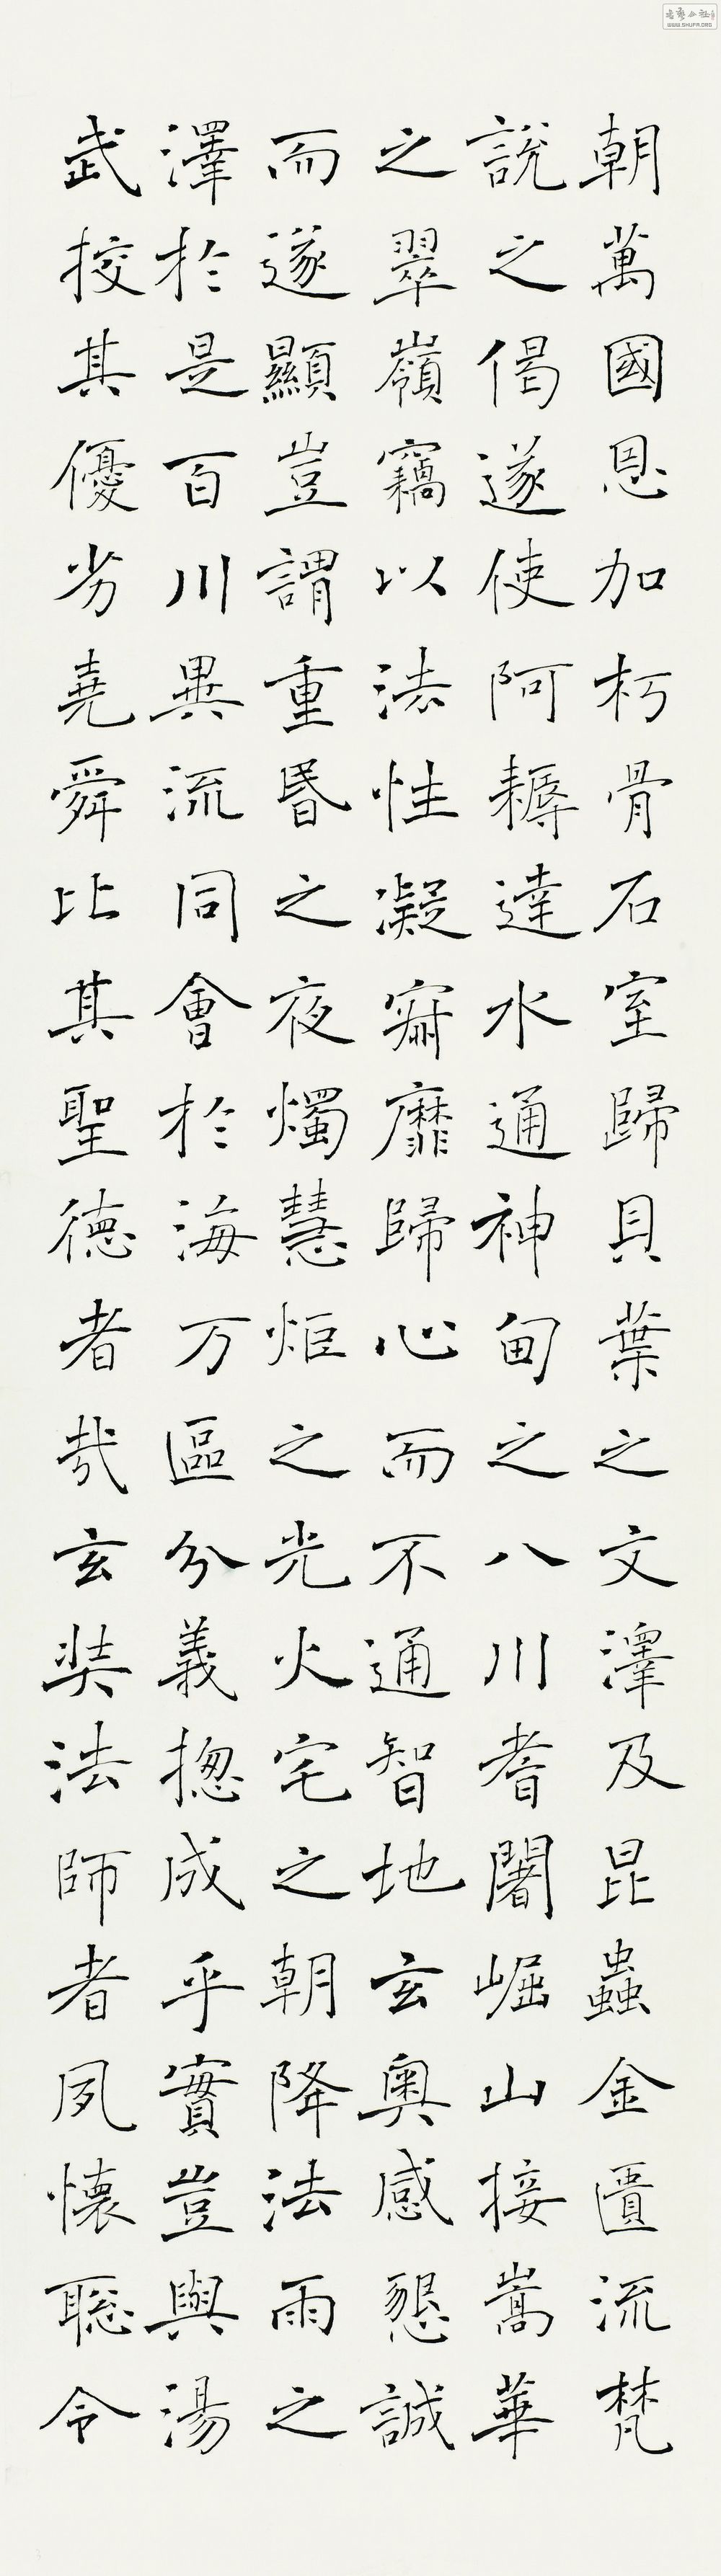 朝萬國恩加朽骨石室歸貝葉之文澤及昆蟲金匱流梵
說之偈遂使阿耨達水通神甸之八川耆闍崛山接嵩華
之翠嶺竊以法性凝寂靡歸心而不通智地玄奧感懇誠
而遂顯豈謂重昏之夜燭慧炬之光火宅之朝降法雨之
澤於是百川異流同會於海万區分義揔成乎實豈與湯
武挍其優劣堯舜比其聖德者哉玄奘法師者夙懷聡令
WWW.SHUFA.ORG